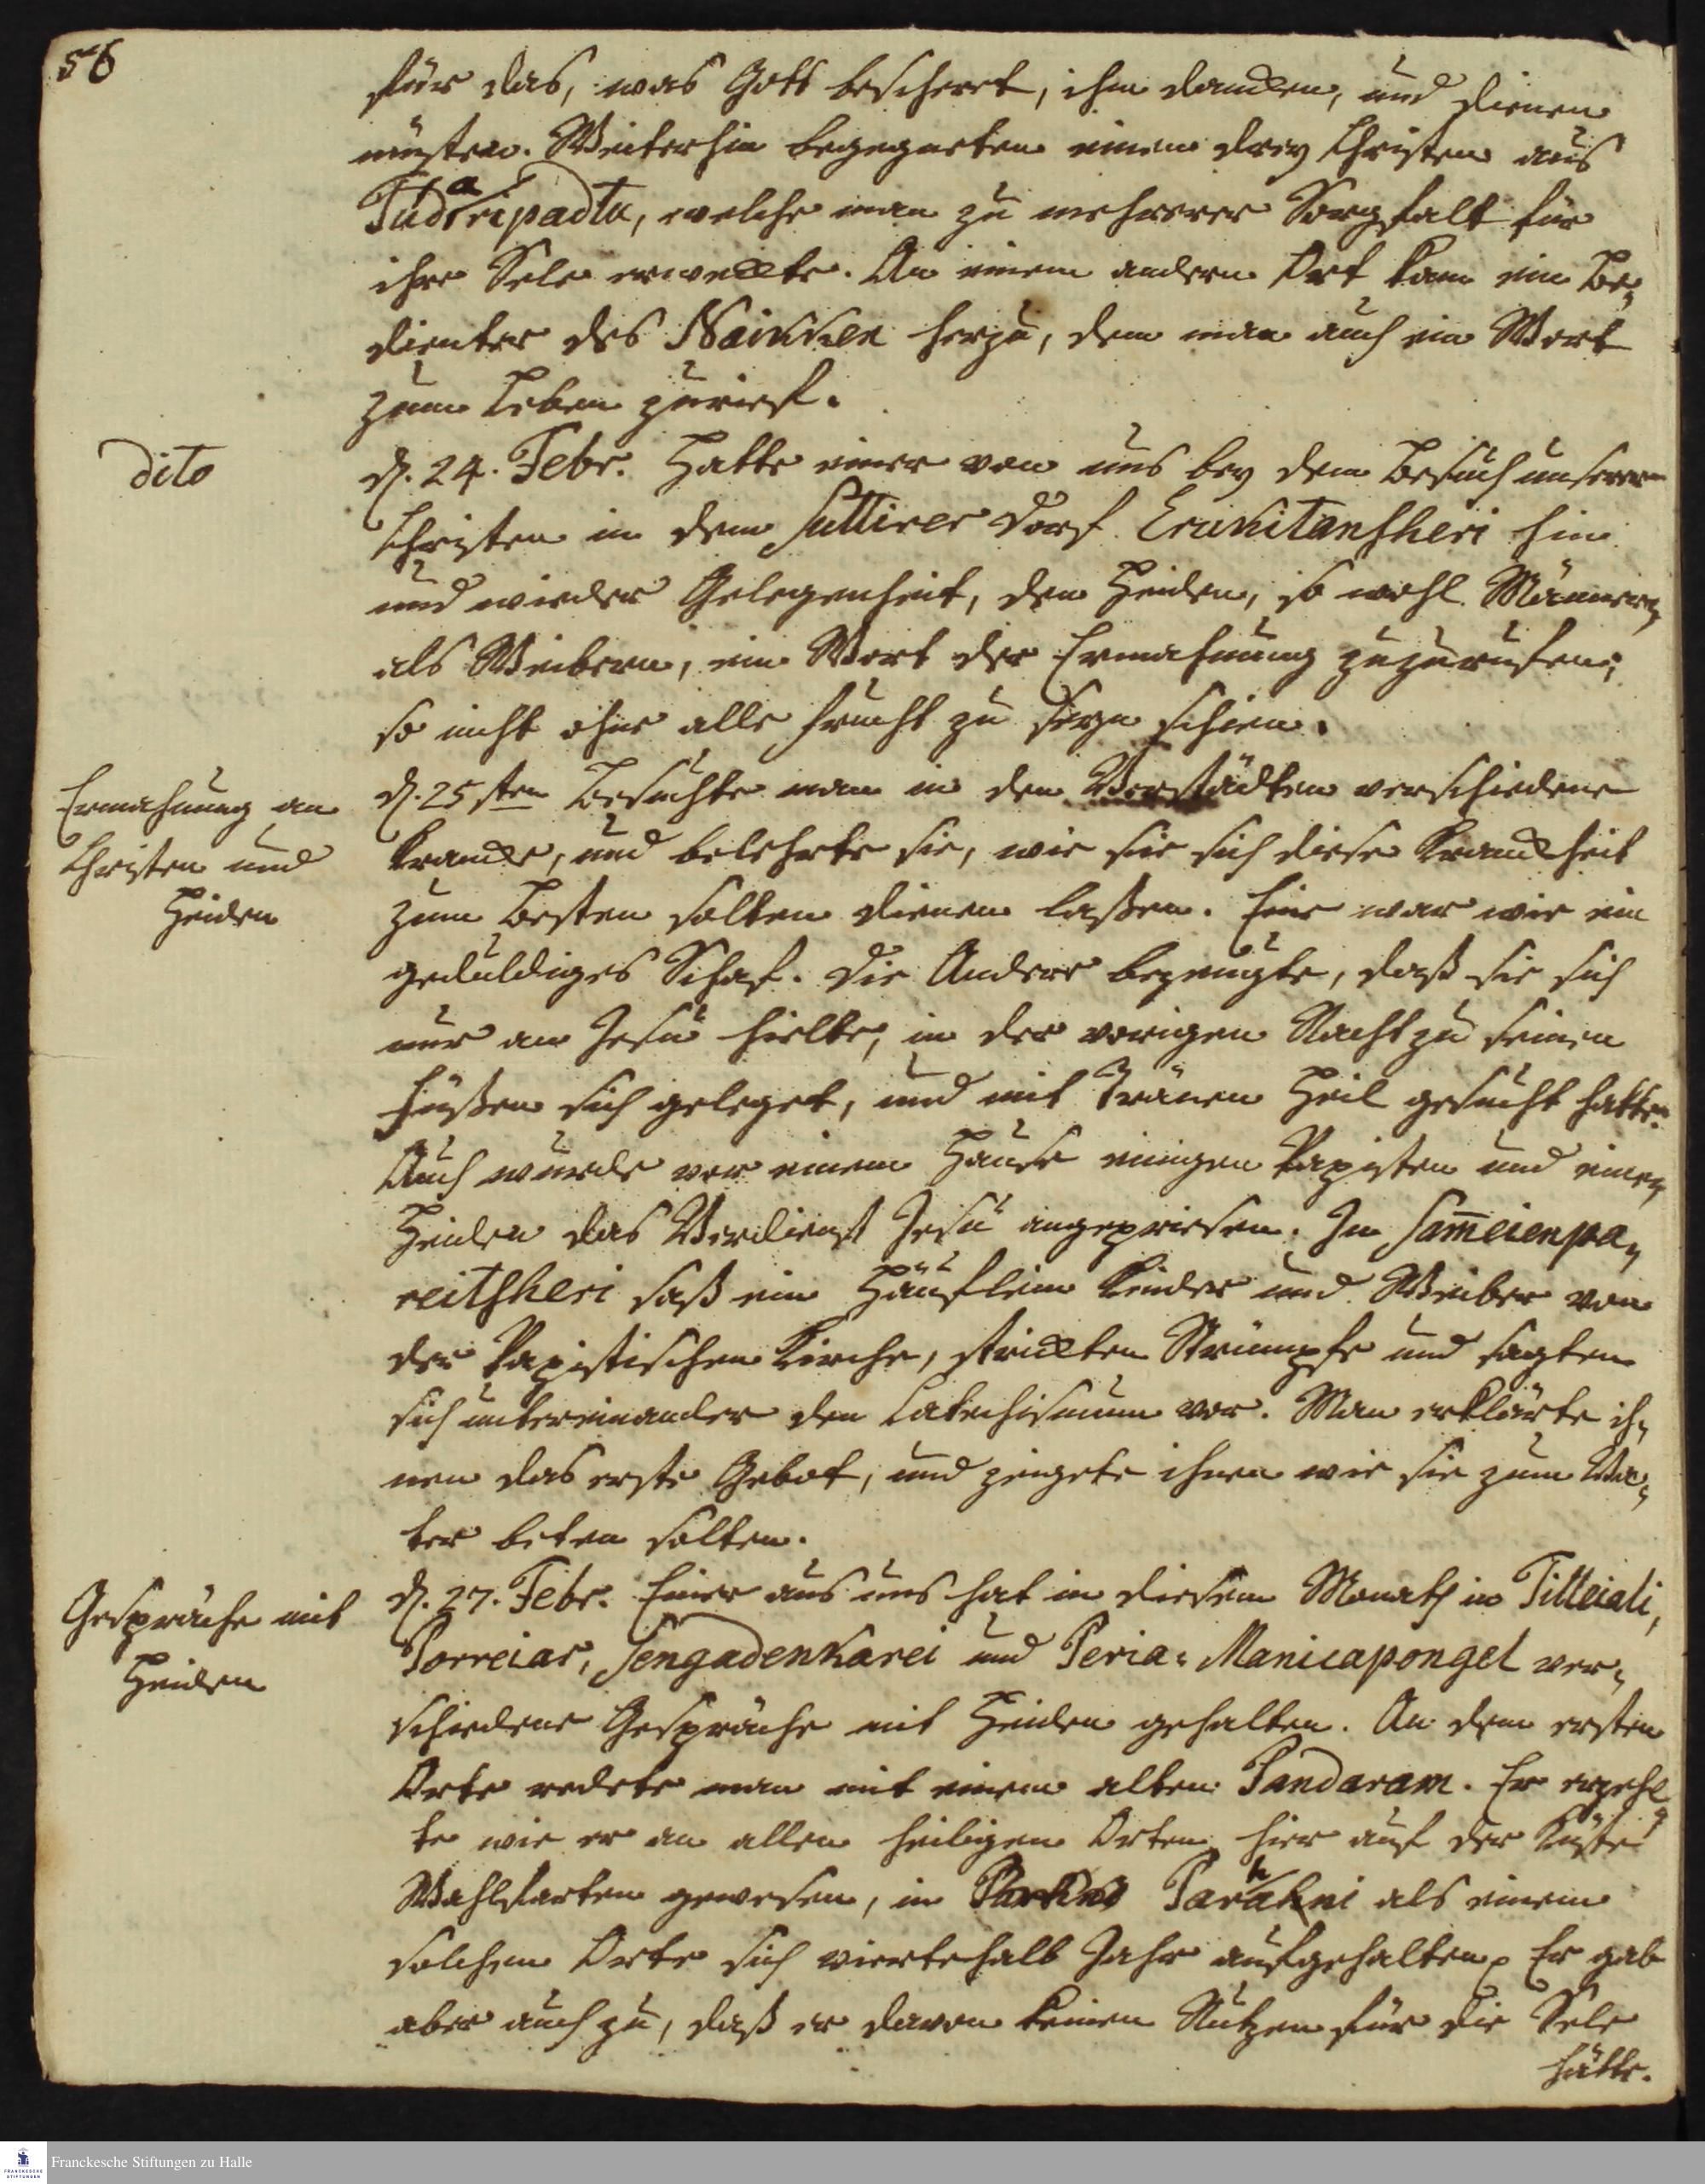 56
für das, was Gott bescheret, ihm dancken, und dienen
müsten. Weiterhin begegneten einem drey Christen aus
Tudaripadtu, welche man zu mehrerer Sorgfalt für
ihre Sele erweckte. An einem andern Ort kam ein Be-
dienter des Nainken herzu, dem man auch ein Wort
zum Leben zurief.
dito
d. 24. Febr. Hatte einer von uns bey dem Besuch unserer
Christen in dem Suttirer Dorf Erukitansheri hin
und wieder Gelegenheit, den Heiden, so wohl Männern,
als Weibern, ein Wort der Ermahnung zuzurufen;
so nicht ohne alle Frucht zu seyn schien.
Ermahnung an
Christen und
Heiden
d. 25sten Besuchte man in den Vorstädten verschiedene
Krancke, und belehrte sie, wie sie sich diese Kranckheit
zum Besten solten dienen laßen. Eine war wie ein
geduldiges Schaf. Die Andere bezeugte, daß sie sich
nur an Jesu hielte, in der vorigen Nacht zu seinen
Füßen sich geleget, und mit Tränen Heil gesucht hatte.
Auch wurde vor einem Hause einigen Papisten und einem
Heiden das Verdienst Jesu angepriesen. In Sam̄eienpa-
reitsheri saß ein Häuflein Kinder und Weiber von
der Papistischen Kirche, strickten Strümpfe und sagten
sich untereinander den Catechismum vor. Man erklärte ih-
nen das erste Gebot, und zeigete ihnen wie sie zum Va-
ter beten solten.
Gespräche mit
Heiden
d. 27. Febr. Einer aus uns hat in diesem Monath in Tilleiali,
Porreiar, Sengadenkarei und Peria-Manicapongel ver-
schiedene Gespräche mit Heiden gehalten. An dem ersten
Orte redete man mit einem alten Pandaram. Er erzehl-
te wie er an allen heiligen Orten hier auf der Küste
Wahlfarten gewesen, in Parahni als einem
solchen Orte sich viertehalb Jahr aufgehalten. Er gab
aber auch zu, daß er davon keinen Nutzen für die Sele
hätte.
Franckesche Stiftungen zu Halle